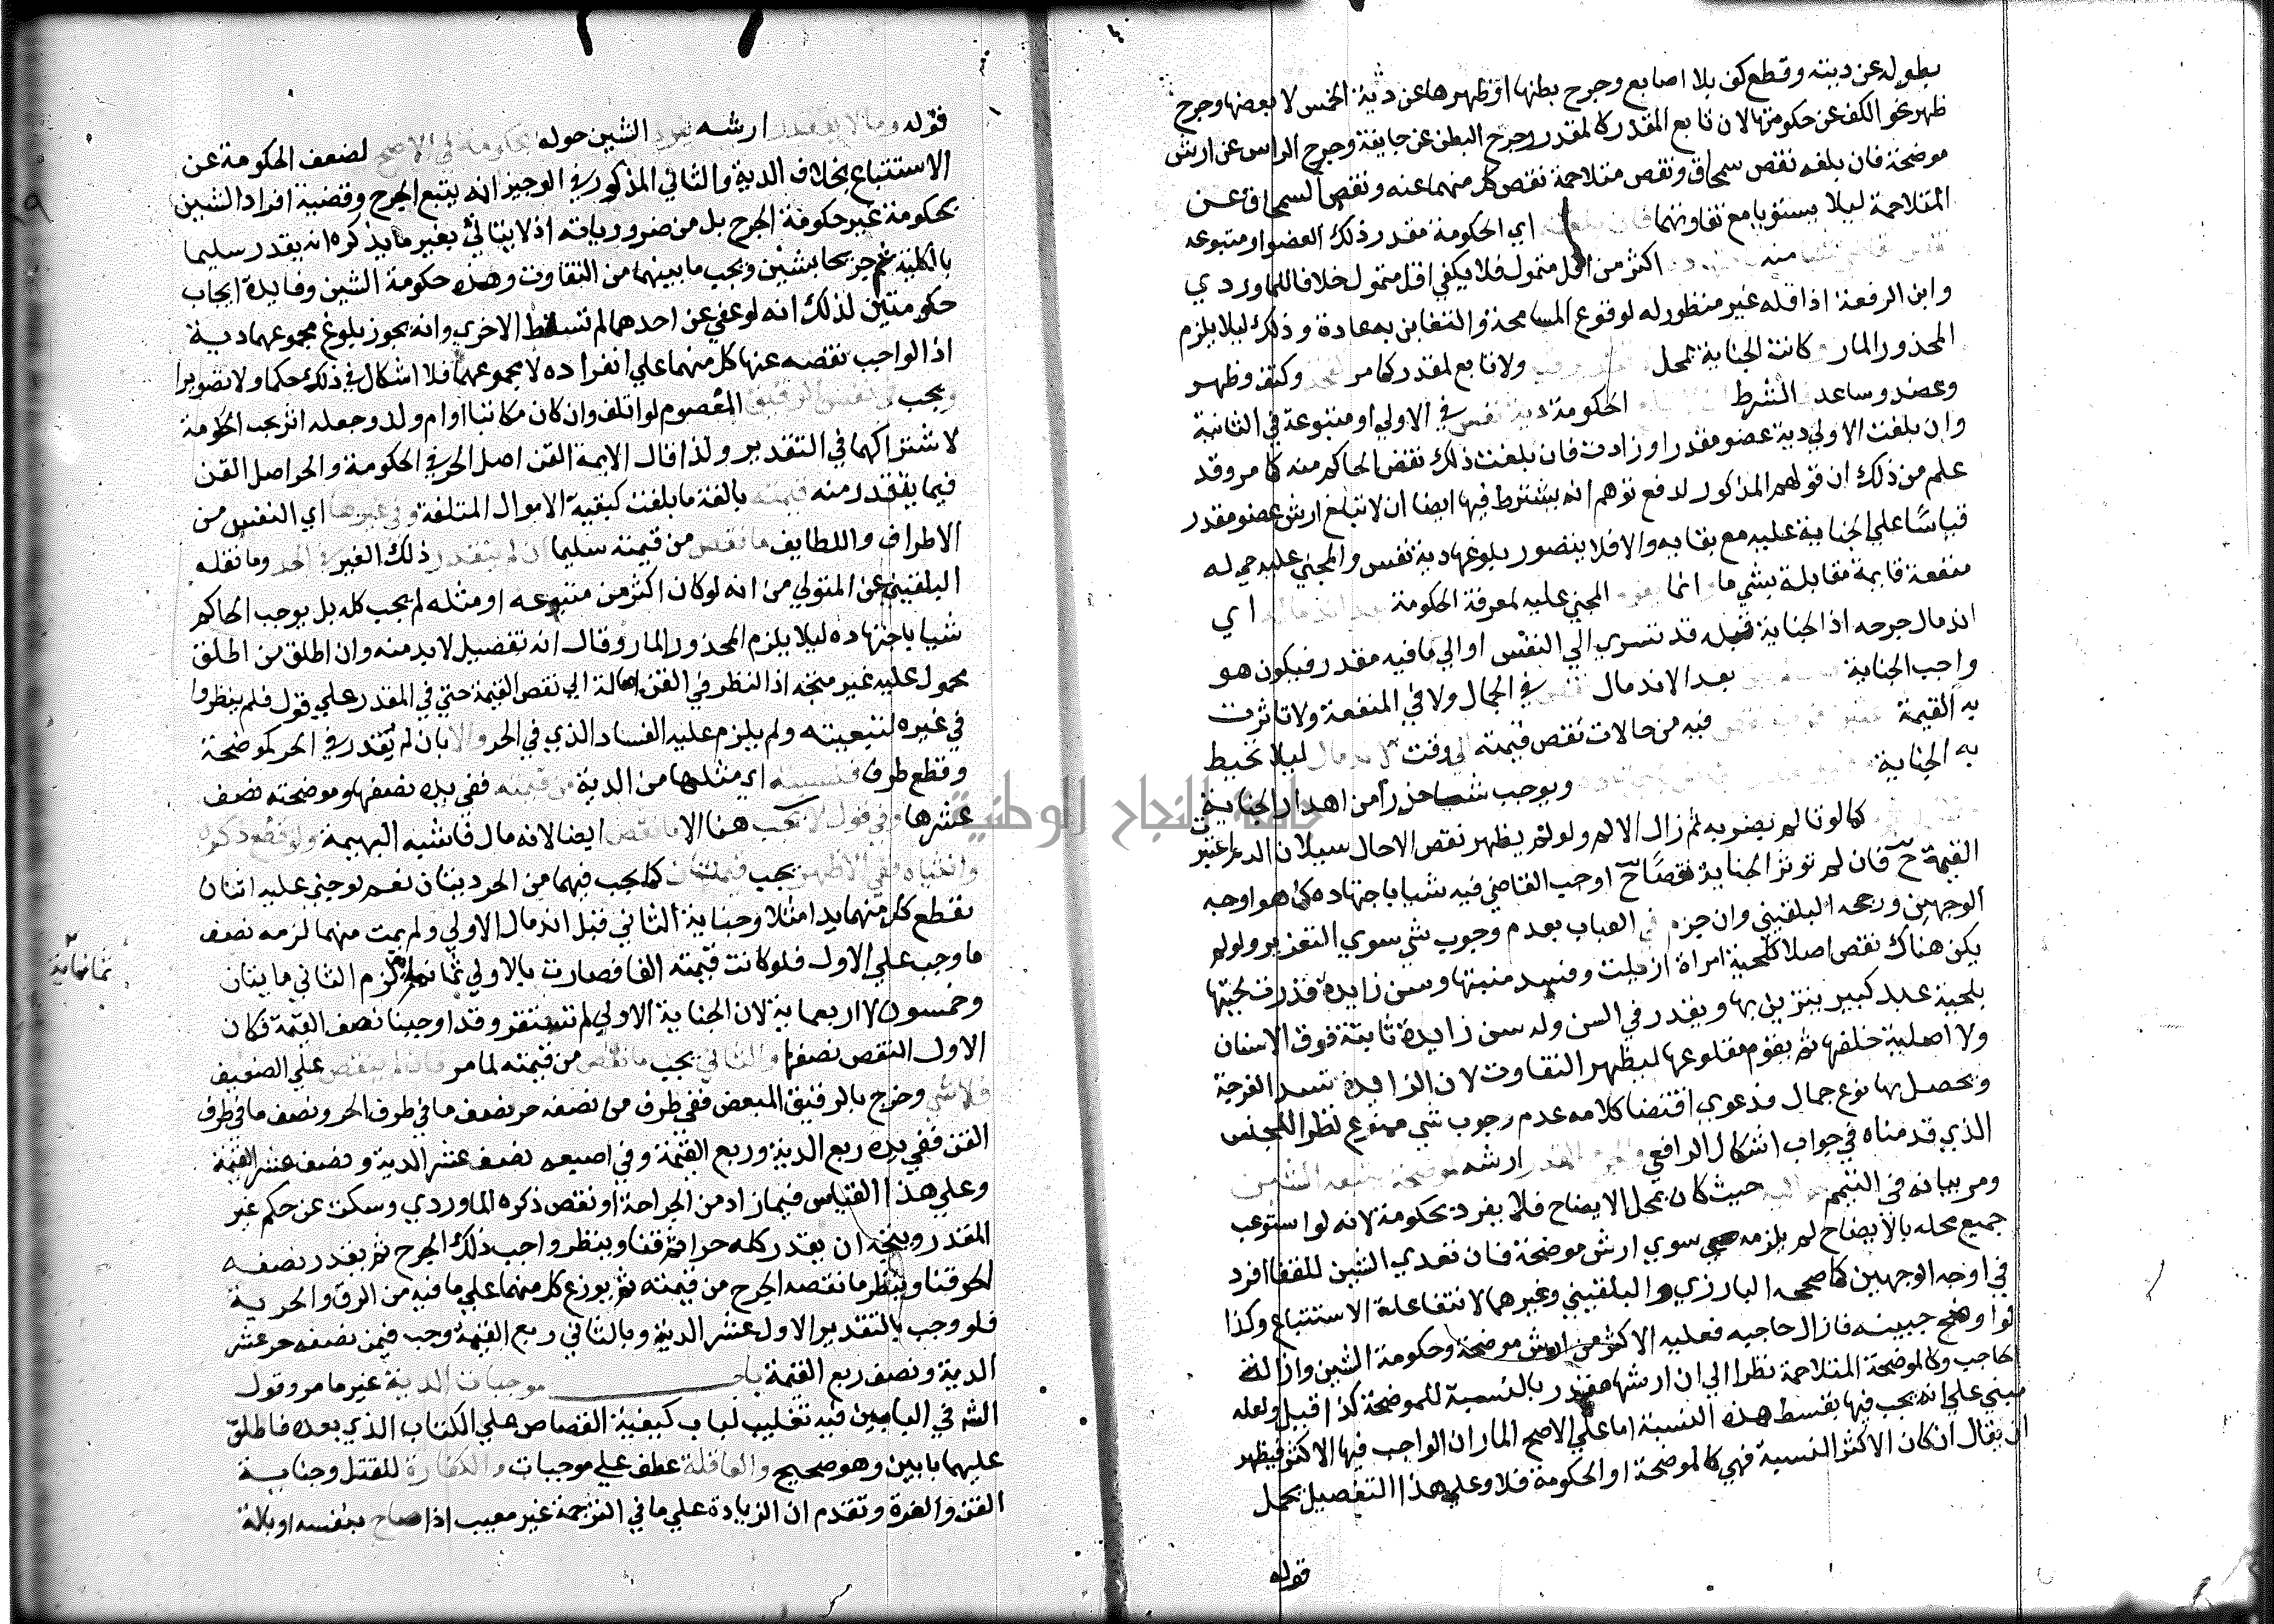 بطوله عن ديته وقطع كف بلا اصابع وجرح بطنها او ظهرها عن دية الخمس لا بعضها وجرح
ظهر نحو الكف عن حكومتها لان تابع المقدر كالمقدر وجرح البطن عن جايفة وجرح الراس عن ارش
موضحة فان بلغه نقص سمحاق ونقص متلاحمة نقص كل منهما عنه ونقص السمحاق عن
المتلاحمة ليلا يستويا مع تفاوتهما فان بلغته اي الحكومة مقدر ذلك العضو او متبوعه
منه اكثر من اقل متمول فلا يكفي اقل متمول خلافا للماوردي
وابن الرفعة اذ اقله غير منظور له لوقوع المسامحة والتغابن به عادة وذلك ليلا يلزم
المحذور المار كانت الجناية لمحل ولا تابع لمقدر كما مر وكتف وظهر
وعضد وساعد الشرط الحكومة دية نفس في الاولي او متبوعة في الثانية
وان بلغت الاولي دية عضو مقدر او زادت فان بلغت ذلك نقص الحاكم منه كما مر وقد
علم من ذلك ان قولهم المذكور لدفع توهم انه يشترط فيها ايضا ان لا تبلغ ارش عضو مقدر
قياسًا علي الجناية عليه مع بقايه والا فلا يتصور بلوغها دية نفس والمجني عليه حي له
منفعة قايمة مقابلة بشي ما انما يقوم المجني عليه لمعرفة الحكومة بعد اندماله اي
اندمال جرحه اذ الجناية قبله قد تسري الي النفس او الي ما فيه مقدر فيكون هو
واجب الجناية بعد الاندمال في الجمال ولا في المنفعة ولا تاثرت
به القيمة فيه من حالات نقص قيمته الي وقت الاندمال ليلا تحبط
به الجناية ويوجب شيا حذرا من اهدار الجناية
كما لو تالم بضربه ثم زال الالم ولو لم يظهر نقص الا حال سيلان الدم اعتبر
القيمة ح فان لم توثر الجناية نقصًا ح اوجب القاضي فيه شيا باجتهاده كما هو اوجه
الوجهين ورجحه البلقيني وان جزم في العباب بعدم وجوب شي سوي التعزير ولو لم
يكن هناك نقص اصلا كلحية امراة ازيلت وفسد منبتها وسن زايدة قدرت لحيتها
بلحية عبد كبير يتزين بها ويقدر في السن وله سن زايدة نابتة فوق الاسنان
ولا اصلية خلفها ثم يقوم مقلوعها ليظهر التفاوت لان الزايدة تسد الفرجة
ويحصل بها نوع جمال فدعوي اقتضا كلامه عدم وجوب شي ممنوع نظرا للجنس
الذي قدمناه في جواب اشكال الرافعي والجرح المقدر ارشه كموضحة يتبعه الشين
ومر بيانه في التيمم حواليه حيث كان بمحل الايضاح فلا يفرد بحكومة لانه لو استوعب
جميع محله بالايضاح لم يلزمه سوي ارش موضحة فان تعدي الشين للقفا افرد
في اوجه الوجهين كما صححه البارزي والبلقيني وغيرهما لانتفا علة الاستتباع وكذا
لو اوضح جبينه فازال حاجبه فعليه الاكثر من ارش موضحة وحكومة الشين وازالة
الحاجب وكالموضحة المتلاحمة نظرا الي ان ارشها مقدر بالنسبة للموضحة كذا قيل ولعله
مبني علي انه يجب فيها بقسط هذه النسبة اما علي الاصح المار ان الواجب فيها الاكثر فيظهر
ان يقال ان كان الاكثر النسبة فهي كالموضحة او الحكومة فلا وعلي هذا التفصيل يحمل
قوله
قوله وما لا يتقدر ارشه يفرد الشين حوله بحكومة في الاصح لضعف الحكومة عن
الاستتباع بخلاف الدية والثاني المذكور في الوجيز انه يتبع الجرح وقضية افراد الشين
بحكومة غير حكومة الجرح بل من ضرورياته اذ لا يتاتي بغير ما يذكره انه يقدر سليما
بالكلية ثم جريحا بشين ويجب ما بينهما من التفاوت وهذه حكومة الشين وفايدة ايجاب
حكومتين لذلك انه لو عفي عن احدهما لم تسقط الاخري وانه يجوز بلوغ مجموعهما دية
اذ الواجب نقصه عنها كل منهما علي انفراده لا مجموعهما فلا اشكال في ذلك حكما ولا تصويرا
ويجب في نفس الرقيق المعصوم لو اتلف وان كان مكاتبا او ام ولد وجعله اثر بحث الحكومة
لاشتراكهما في التقدير ولذا قال الايمة القن اصل الحر في الحكومة والحر اصل القن
فيما يتقدر منه قيمته بالغة ما بلغت كبقية الاموال المتلفة وفي غيرها اي النفس من
الاطراف واللطايف ما نقص من قيمته سليما ان لم يتقدر ذلك الغير في الحر وما نقله
البلقيني عن المتولي من انه لو كان اكثر من متبوعه او مثله لم يجب كله بل يوجب الحاكم
شيا باجتهاده ليلا يلزم المحذور المار وقال انه تفصيل لابد منه وان اطلق من اطلق
محمول عليه غير متجه اذ النظر في القن اصالة الي نقص القيمة حتي في المقدر علي قول فلم ينظروا
في غيره لتبعيته ولم يلزم عليه الفساد الذي في الحر والا بان لم يقدر في الحر كموضحة
وقطع طرف فنسبته اي مثلها من الدية من قيمته ففي يده نصفها وموضحته نصف
عشرها وفي قول لا يجب هنا الا ما نقص ايضا لانه مال فاشبه البهيمة ولو قطع ذكره
وانثياه ففي الاظهر يجب قيمتان كما يجب فيهما من الحر ديتان نعم لو جني عليه اثنان
بقطع كل منهما يدا مثلا وجناية الثاني قبل اندمال الاولي ولم يمت منهما لزمه نصف
ما وجب علي الاول فلو كانت قيمته الفا فصارت بالاولي ثمانماية لزم الثاني مايتان
ثمانماية
وخمسون لا اربعماية لان الجناية الاولي لم تستقر وقد اوجبنا نصف القيمة فكان
الاول انتقص نصفها والثاني يجب ما نقص من قيمته لما مر فان لم ينقص علي الضعيف
فلا شي وخرج بالرقيق المبعض ففي طرف من نصفه حر نصف ما في طرف الحر ونصف ما في طرف
القن ففي يده ربع الدية وربع القيمة وفي اصبعه نصف عشر الدية ونصف عشر القيمة
وعلي هذا القياس فيما زاد من الجراحة او نقص ذكره الماوردي وسكت عن حكم غير
المقدر ويتجه ان يقدر كله حرا ثم قنا وينظر واجب ذلك الجرح ثم يقدر نصفه
كحر وقنا وينظر ما نقصه الجرح من قيمته ثم يوزع كل منهما علي ما فيه من الرق والحرية
فلو وجب بالتقدير الاول عشر الدية وبالثاني ربع القيمة وجب فيمن نصفه حر عشر
الدية ونصف ربع القيمة باب موجبات الدية غير ما مر وقول
الشر في البابين فيه تغليب لباب كيفية القصاص علي الكتاب الذي بعده فاطلق
عليهما بابين وهو صحيح والعاقلة عطف علي موجبات والكفارة للقتل وجناية
القن والغرة وتقدم ان الزيادة علي ما في الترجمة غير معيب اذا صاح بنفسه او بالة
جامعة النجاح الوطنية